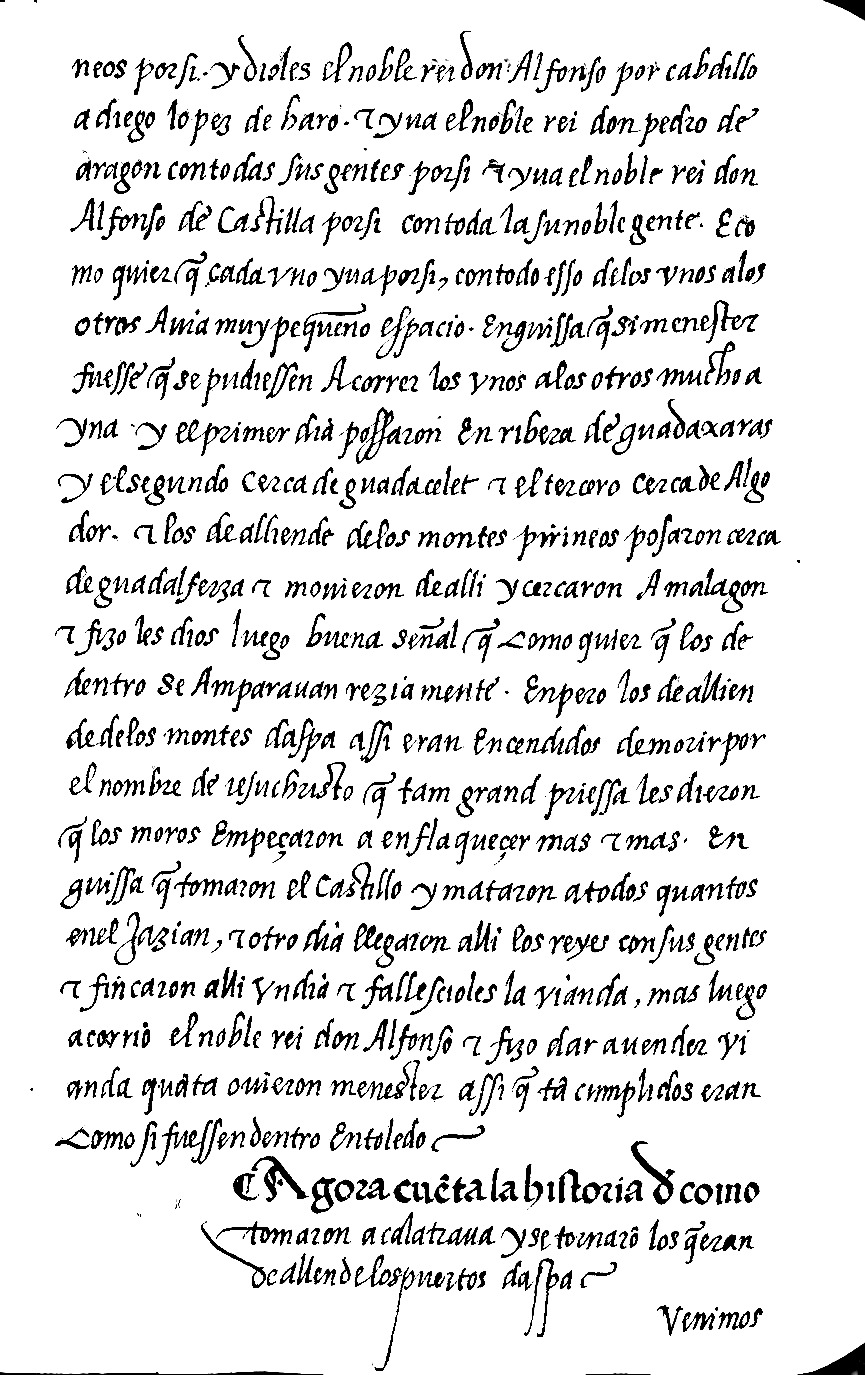 neos porsi. y dioles el noble rei don Alfonso por cabdillo
a diego lopez de haro. ⁊ yua el noble rei don pedro de
aragon con todas sus gentes porsi ⁊ yua el noble rei don
Alfonso de Castilla porsi con toda la su noble gente. E co
mo quier q̃ cada vno yua porsi, con todo esso delos vnos alos
otros Auia muy pequeño espacio. En guissa q̃ si menester
fuesse q̃ se pudiessen Acorrer los vnos alos otros mucho a
yna y el primer dia possaron En ribera de guadaxaras
y el segundo cerca de guadacelet ⁊ el tercero cerca de Algo
dor. ⁊ los de alliende delos montes pirineos posaron cerca
de guadalferza ⁊ mouieron de alli y cercaron A malagon
⁊ fizo les dios luego buena señal q̃ como quier q̃ los de
dentro se Amparauan reziamente. Enpero los de allien
de delos montes daspa assi eran Encendidos de morir por
el nombre de iesuchristo q̃ tam grand priessa les dieron
q̃ los moros Empeçaron a enflaqueçer mas ⁊ mas. En
guissa q̃ tomaron el Castillo y mataron a todos quantos
enel Jazian, ⁊ otro dia llegaron alli los reyes con sus gentes
⁊ fincaron alli vn dia ⁊ fallescioles la vianda, mas luego
acorrio el noble rei don Alfonso ⁊ fizo dar a uender vi
anda quãta ouieron menester assi q̃ tã cumplidos eran
Como si fuessen dentro En toledo
Agora cuẽta la historia d̃ como
tomaron a calatraua y se tornarõ los q̃ eran
de allende los puertos daspa
Venimos